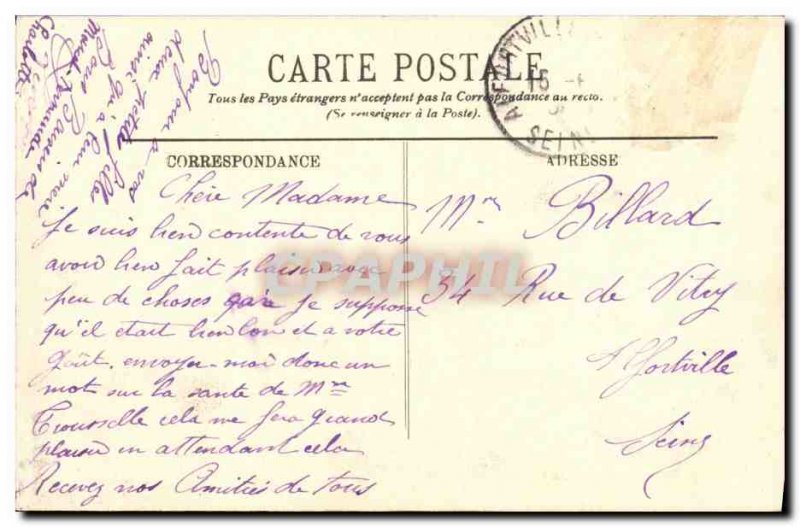 CARTE POSTALE
Tous les Pays étrangers n'acceptent pas la Correspondance au recto.
(Se renseigner à la Poste).
ALFORTVILLE
15
SEINE
CORRESPONDANCE
ADRESSE
Chère Madame
Je suis bien contente de vous
avoir bien fait plaisir avec
peu de choses car je suppose
qu'il etait bien bon et a votre
goût. envoyer-moi donc un
mot sur la sante de Mme
Trousselle cela me fera grand
plaisir en attendant cela
Recevez nos Amitiés de tous
Bonjour a vos
deux petites filles
ainsi qu'a leur mère
Bons Baisers de
Charlotte
Mme Billard
34 Rue de Vitry
Alfortville
Seine
CPAPHIL